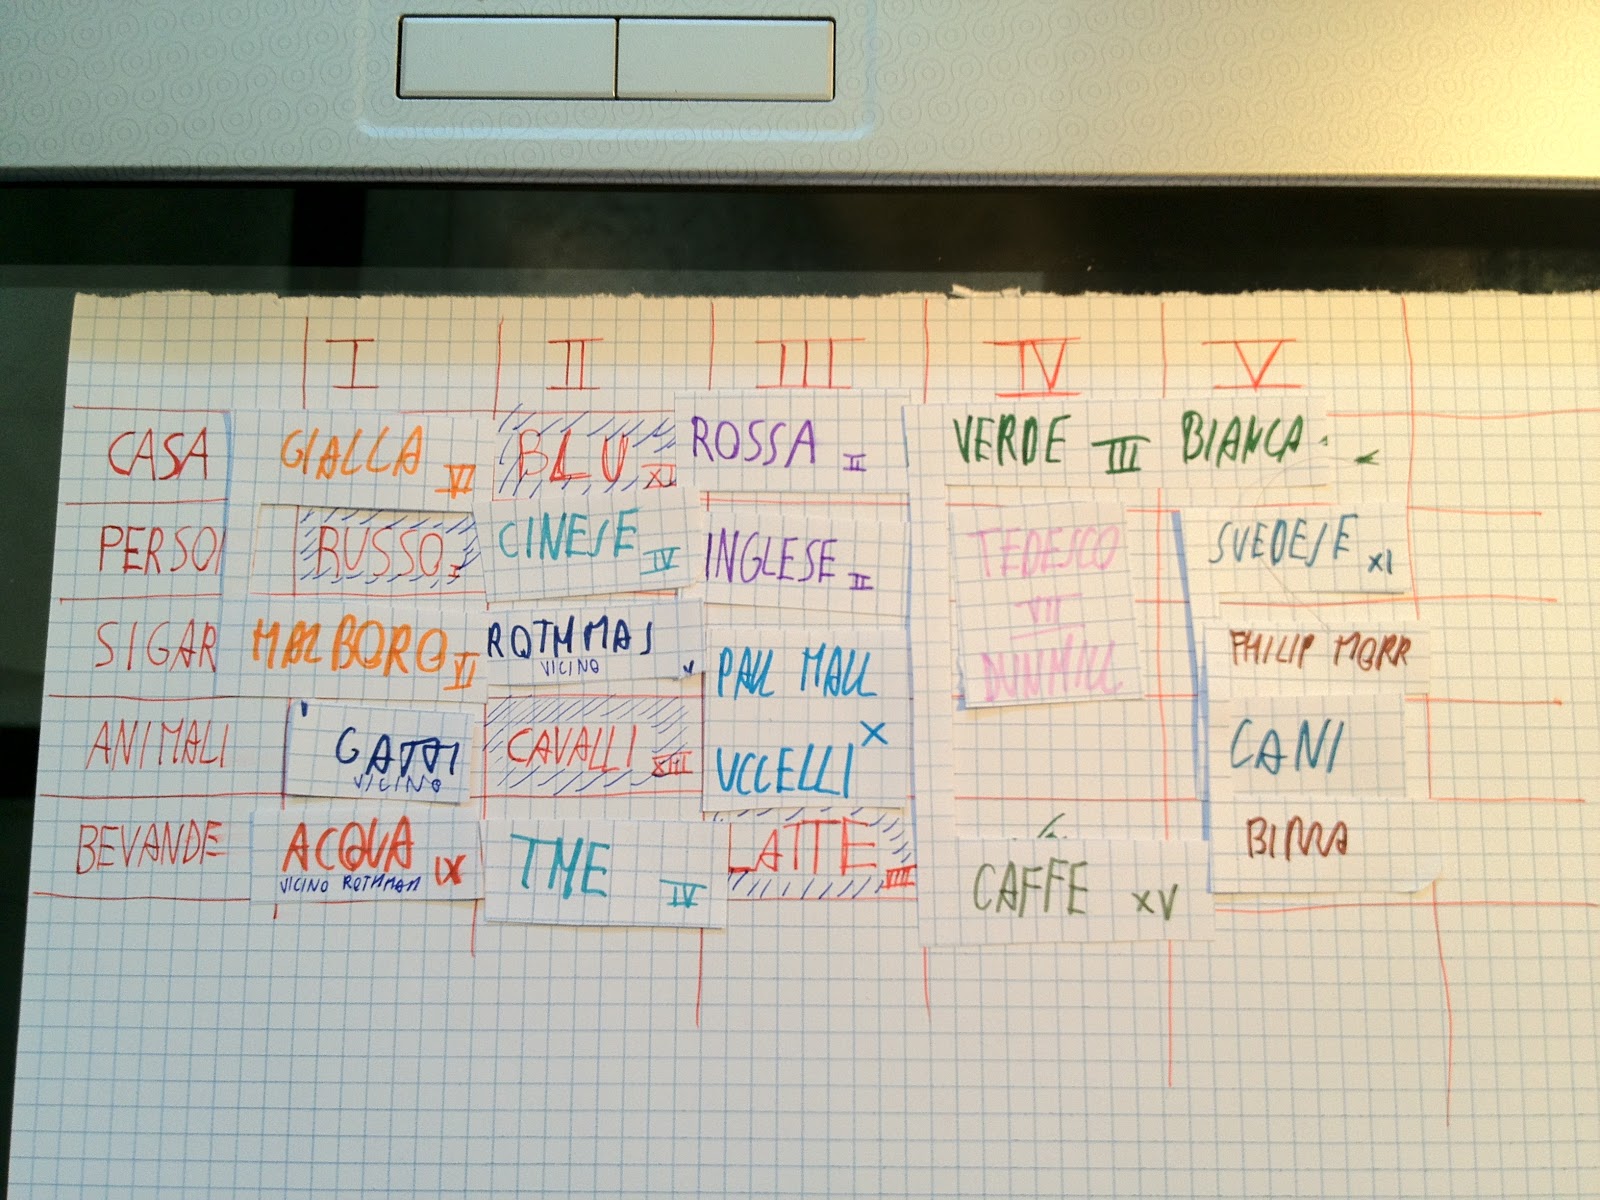 I II III IV V
CASA GIALLA VI BLU XI ROSSA II VERDE III BIANCA
PERSO RUSSO I CINESE IV INGLESE II TEDESCO SVEDESE XI
VII
SIGAR MALBORO VI ROTHMAS PALL MALL DUNHILL PHILIP MORR
VICINO V
ANIMALI GATTI CAVALLI XIII UCCELLI X CANI
VICINO
BEVANDE ACQUA IX THE IV LATTE CAFFE XV BIRRA
VICINO ROTHMAN